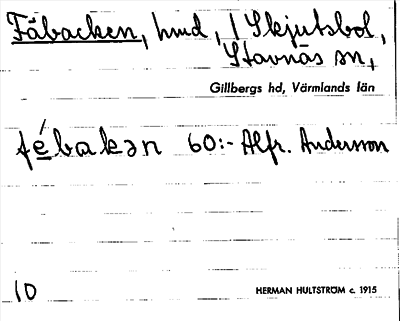 Fäbacken, hmd, / Skjutsbol,
Stavnäs sn,
Gillbergs hd, Värmlands län
fé̱bakən 60:- Alfr. Andersson
10
HERMAN HULTSTRÖM c. 1915